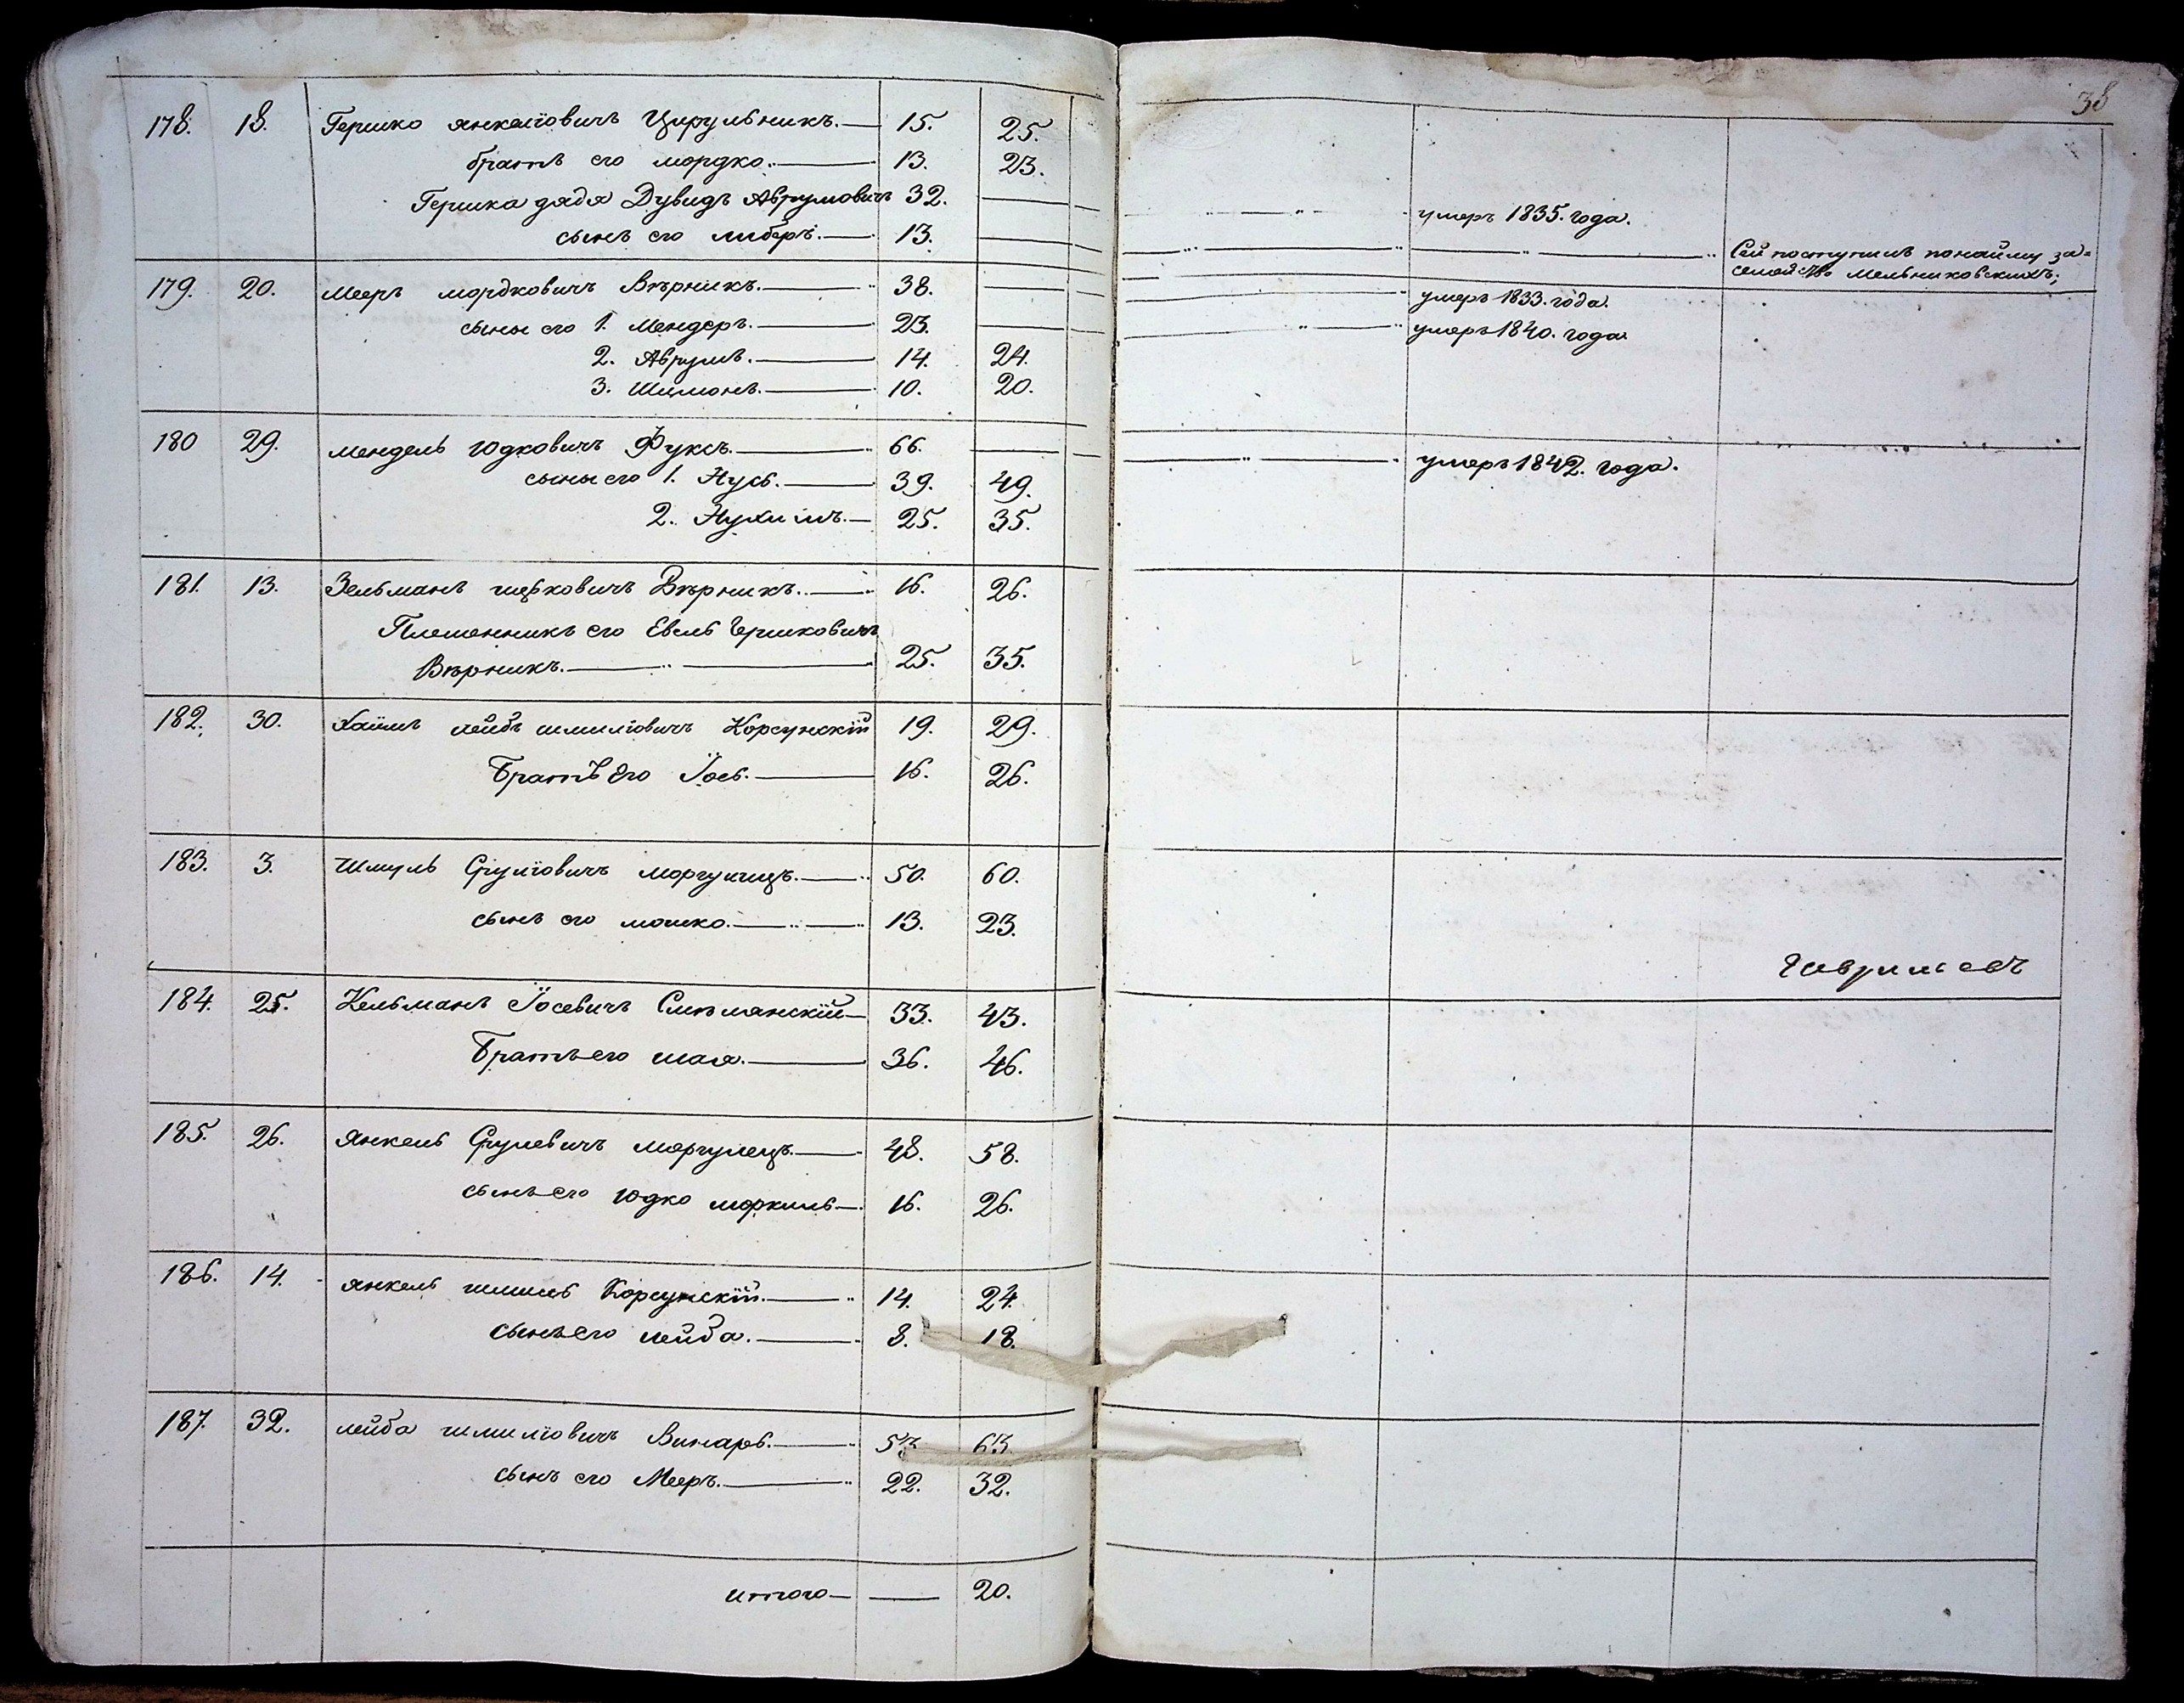 38
178. 18. Гершко янкелiовичъ Цирульникъ. 15. 25.
братъ его мордко. 13. 23.
Гершка дядя Дувидъ Аврумовичъ 32. умеръ 1835. года.
сынъ его либеръ. 13. Сей поступилъ понайму за=
семейство Мельниковскихъ;
179. 20. Мееръ мордковичъ Вѣрникъ. 38. умеръ 1833. года.
сыны его 1. Мендеръ. 23. умеръ 1840. года.
2. Аврумъ. 14. 24.
3. Шимонъ. 10. 20.
180 29. мендель юдковичъ Фуксъ. 66. умеръ 1842. года.
сыны его 1. Нусь. 39. 49.
2. Нухимъ. 25. 35.
181. 13. Зельманъ ицковичъ Вѣрникъ. 16. 26.
Племенникъ его Евель Гершковичъ
Вѣрникъ. 25. 35.
182. 30. Хаимъ лейбъ шмилiовичъ Корсунскiй 19. 29.
Братъ Его Їось. 16. 26.
183. 3. Шмуль Срулiовичъ 50. 60.
сынъ его мошко. 13. 23.
184. 25. Кельманъ Їосевичъ Смѣлянскiй 33. 43.
Братъ его шая. 36. 46.
185. 26. Янкель Срулевичъ моргулецъ. 48. 58.
сынъ его юдко 16. 26.
186. 14. Янкель шмиль Корсунскiй. 14. 24.
сынъ его лейба. 8. 18.
187. 32. лейба шмилiовичъ Винарь. 53. 63.
сынъ его Мееръ. 22. 32.
итого 20.